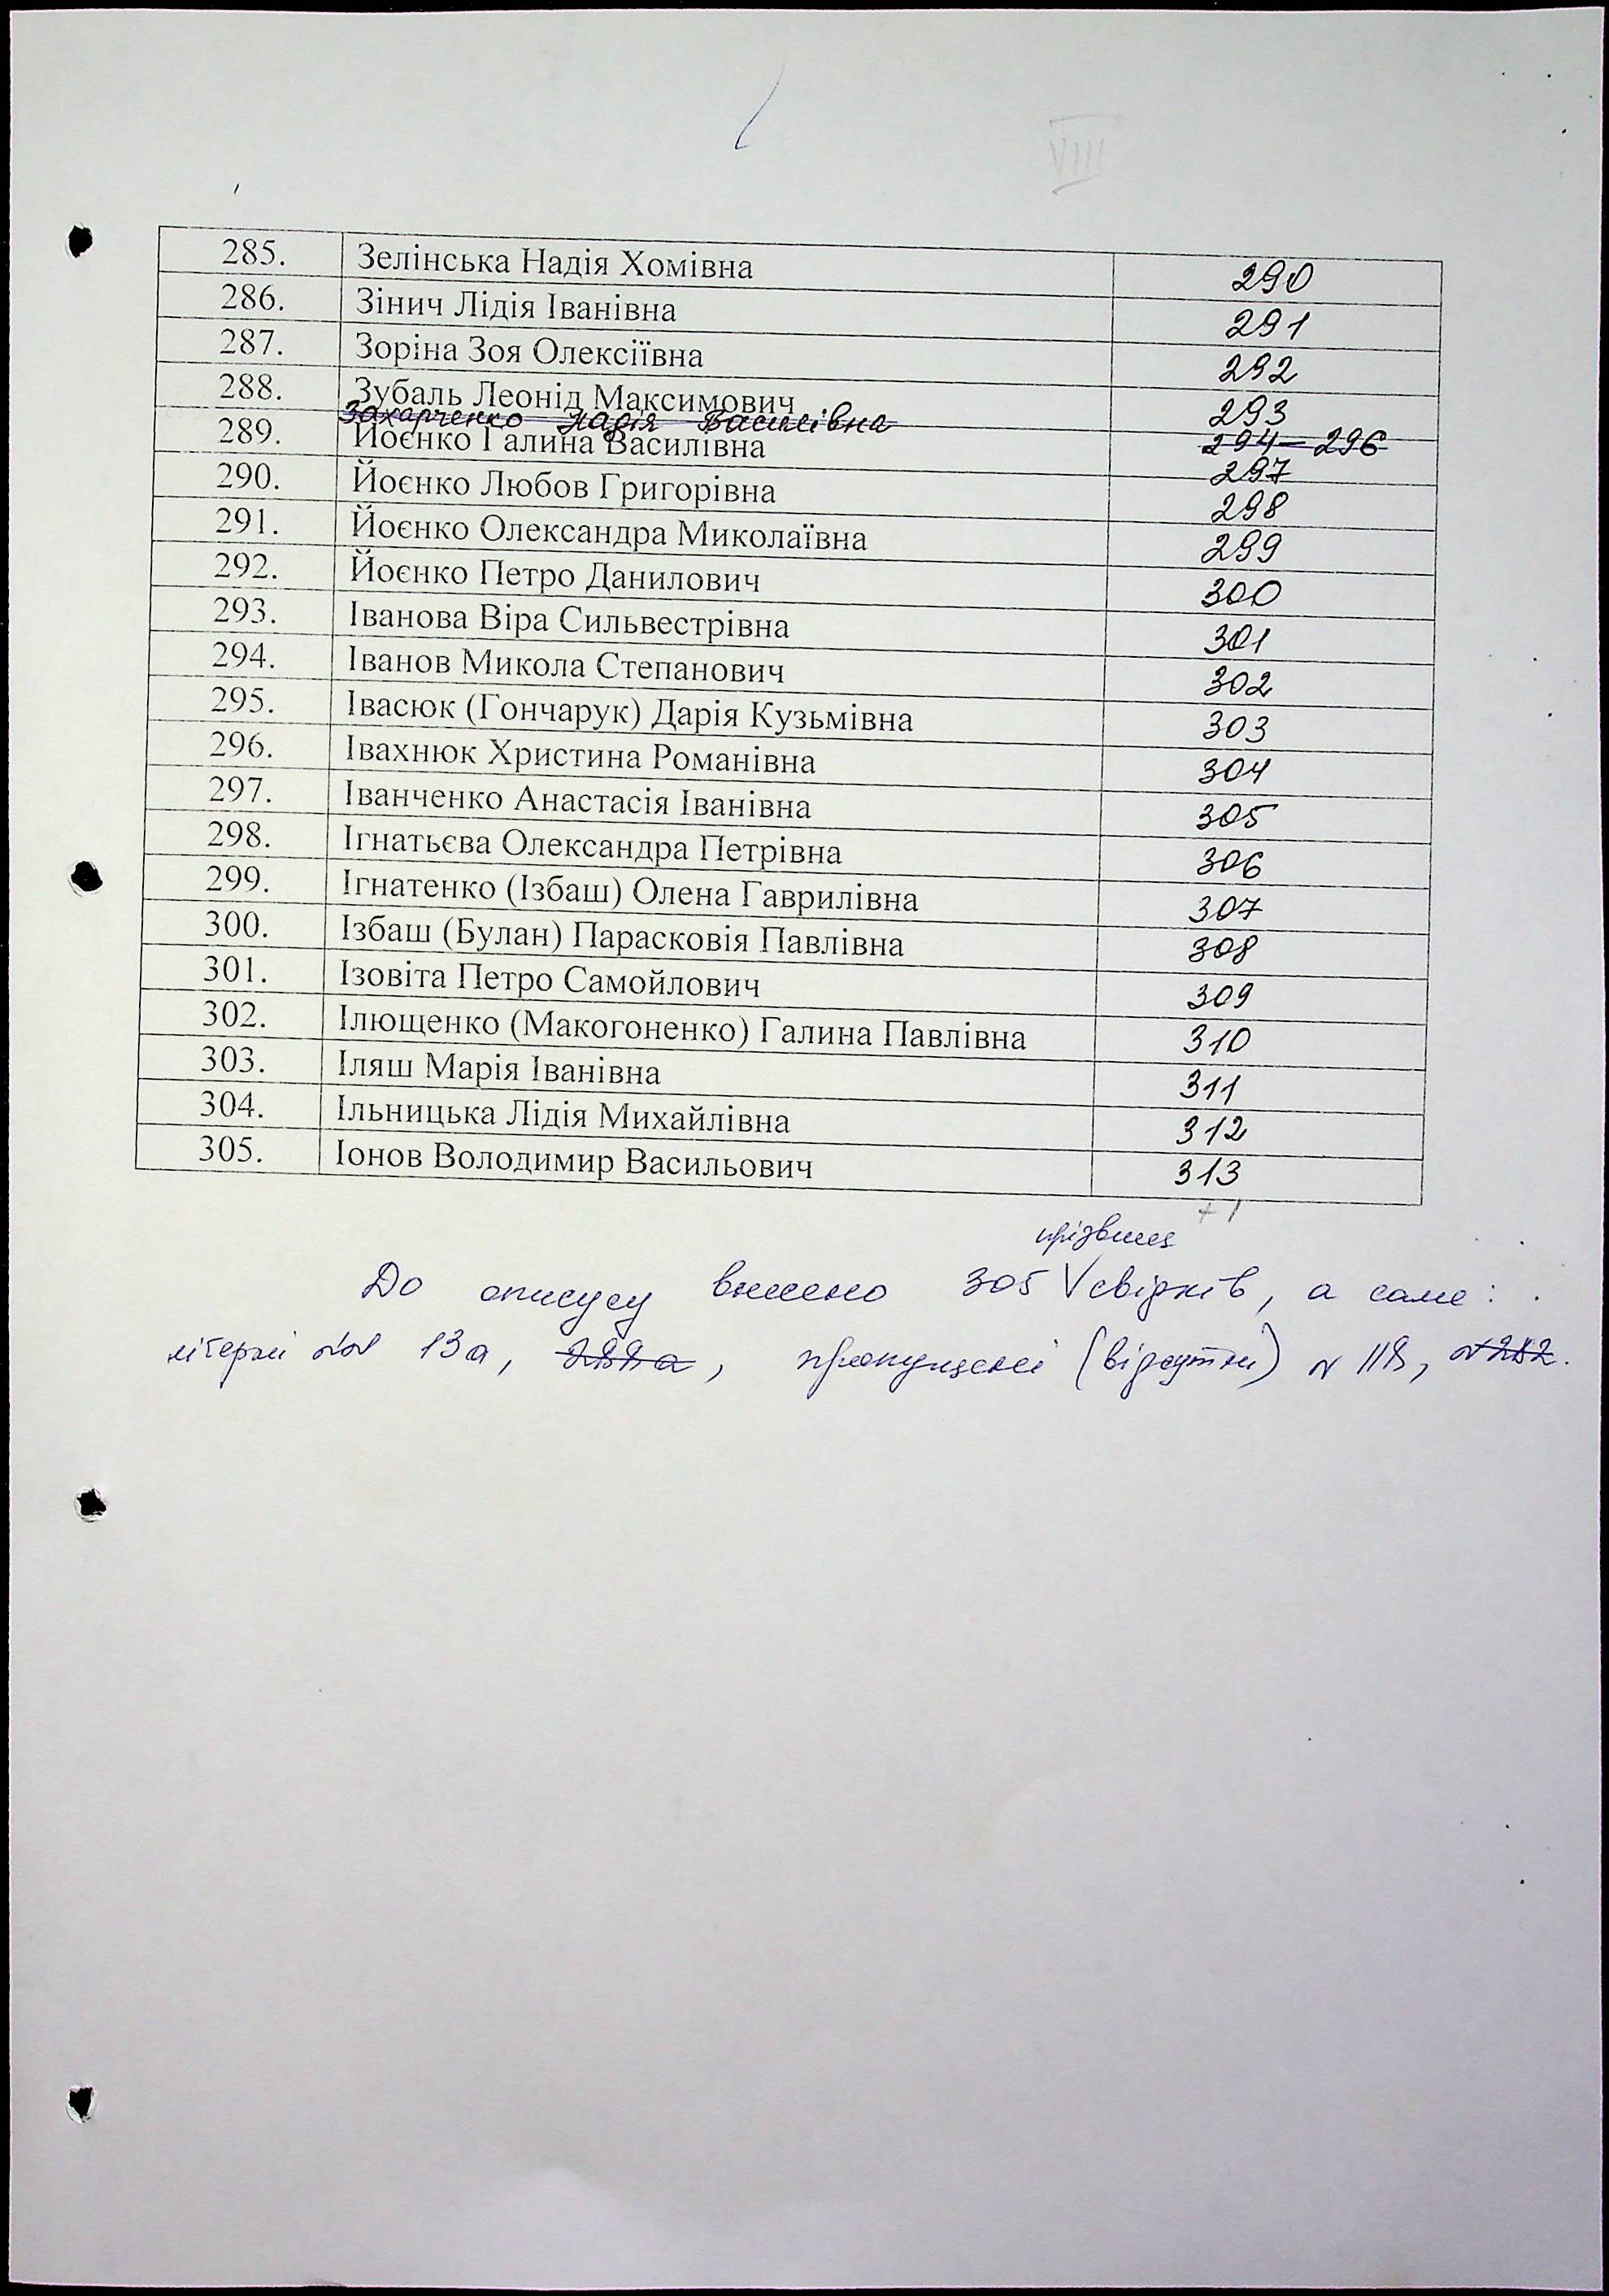 VIII
285. Зелінська Надія Хомівна 290
286. Зінич Лідія Іванівна 291
287. Зоріна Зоя Олексіївна 292
288. Зубаль Леонід Максимович 293
Захарченко Надія Василівна 294-296
289. Йоєнко Галина Василівна 297
290. Йоєнко Любов Григорівна 298
291. Йоєнко Олександра Миколаївна 299
292. Йоєнко Петро Данилович 300
293. Іванова Віра Сильвестрівна 301
294. Іванов Микола Степанович 302
295. Івасюк (Гончарук) Дарія Кузьмівна 303
296. Івахнюк Христина Романівна 304
297. Іванченко Анастасія Іванівна 305
298. Ігнатьєва Олександра Петрівна 306
299. Ігнатенко (Ізбаш) Олена Гаврилівна 307
300. Ізбаш (Булан) Парасковія Павлівна 308
301. Ізовіта Петро Самойлович 309
302. Ілющенко (Макогоненко) Галина Павлівна 310
303. Іляш Марія Іванівна 311
304. Ільницька Лідія Михайлівна 312
305. Іонов Володимир Васильович 313
+1
прізвищ
До опису внесено 305 V свідків, а саме:
літерні №№ 13а, пропущені (відсутні) № 118, №282.